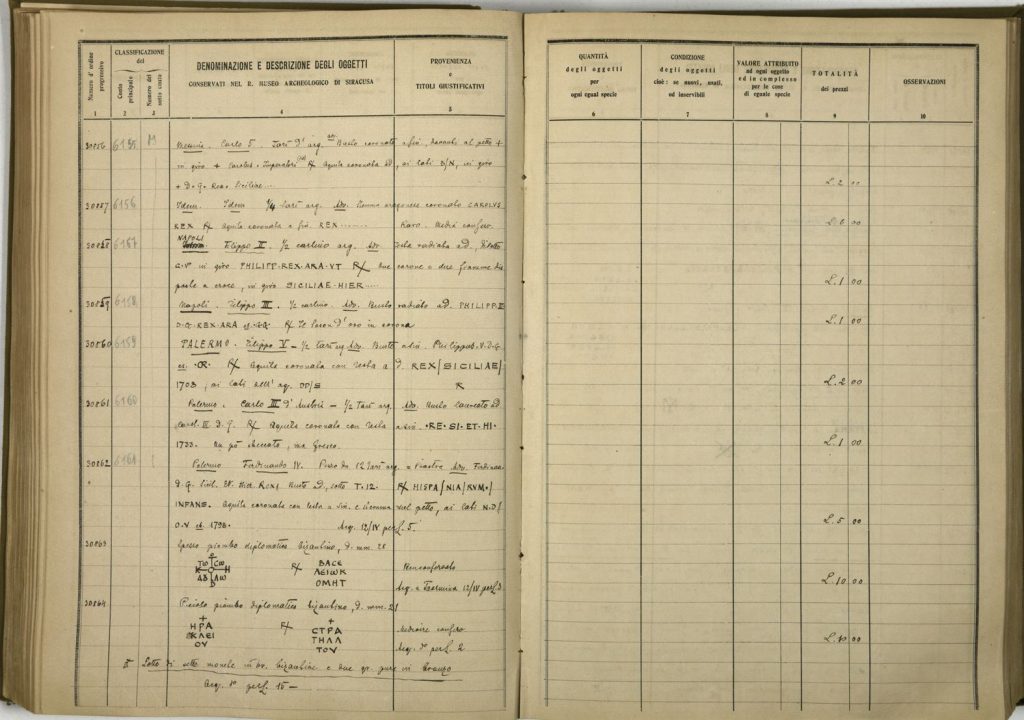 Numero d'ordine progressivo
CLASSIFICAZIONE del
Conto principale
Numero del sotto conto
DENOMINAZIONE E DESCRIZIONE DEGLI OGGETTI
CONSERVATI NEL R. MUSEO ARCHEOLOGICO DI SIRACUSA
PROVENIENZA
e
TITOLI GIUSTIFICATIVI
1 2 3 4 5
30856 6155 M Carlo 5. Tarì d'arg. Busto coronato
in giro + Carolus. Imperator ℞ Aquila coronata ad, ai lati in giro
+ D. G. Rex. Siciliae....
30857 6156 Idem. Idem ¼ tarì arg. Adv. coronato CAROLVS
REX ℞ Aquila coronata a sin. REX ........ Raro.
NAPOLI
30858 6157 Filippo II. ½ carlino arg. Adv Testa radiata ad.
in giro PHILIPP·REX·ARA·VT ℞ due corone e due fiamme
poste a croce, in giro SICILIAE·HIER....
30859 6158 Napoli. Filippo III. ½ carlino. Adv. Busto radiato ad. PHILIPP·III
D·G·REX·ARA ℞ Il toson d'oro in corona
30860 6159 PALERMO. Filippo V – ½ tarì arg Adv. Busto a sin. Philippus·V·D·G
℞ Aquila coronata con testa a d. REX/SICILIAE/
1703, ai lati dell'aq. R
30861 6160 Palermo. Carlo III d'Austria – ½ Tarì arg. Adv. Busto laureato ad.
Carol. III D. G. ℞ Aquila coronata con testa a sin. ·RE·SI·ET·HI·
1733. Un pò ma fresco.
30862 6161 Palermo Ferdinando IV. Pezzo da 12 tarì arg. o Piastra Adv. Ferdinan.
D. G. Sicil. Et. Hier. REX Busto ad, sotto T·12. ℞ HISPA/NIA/RVM·/
INFANS. Aquila coronata con testa a sin. nel petto, ai lati N.D/
O.V et 1798. Acq. 12/IV per £. 5.
30863 Spesso piombo diplomatico bizantino, d. mm. 28
ΤѠ CѠ ℞ ΒΑCΕ
Κ ΛΕΙѠΚ Benconservato
ΔΒ ΛѠ ΟΜΗΤ Acq. a Taormina 12/IV per £.
30864 Piccolo piombo diplomatico bizantino, d. mm. 21
+ ℞ +
ΗΡΑ CΤΡΑ Mediocre conserv.
ΚΛΕΙ ΤΗΛΛ Acq. per £. 2
ΟV ΤΟV
Lotto di sette monete in br. bizantine e due
Acq. per £. 15 –
QUANTITÀ
degli oggetti
per
ogni egual specie
CONDIZIONE
degli oggetti
cioè: se nuovi, usati,
od inservibili
VALORE ATTRIBUITO
ad ogni oggetto
ed in complesso
per le cose
di eguale specie
TOTALITÀ
dei prezzi
OSSERVAZIONI
6 7 8 9 10
L. 2 00
L. 6 00
L. 1 00
L. 1 00
L. 2 00
L. 1 00
L. 5 00
L. 10 00
L. 10 00